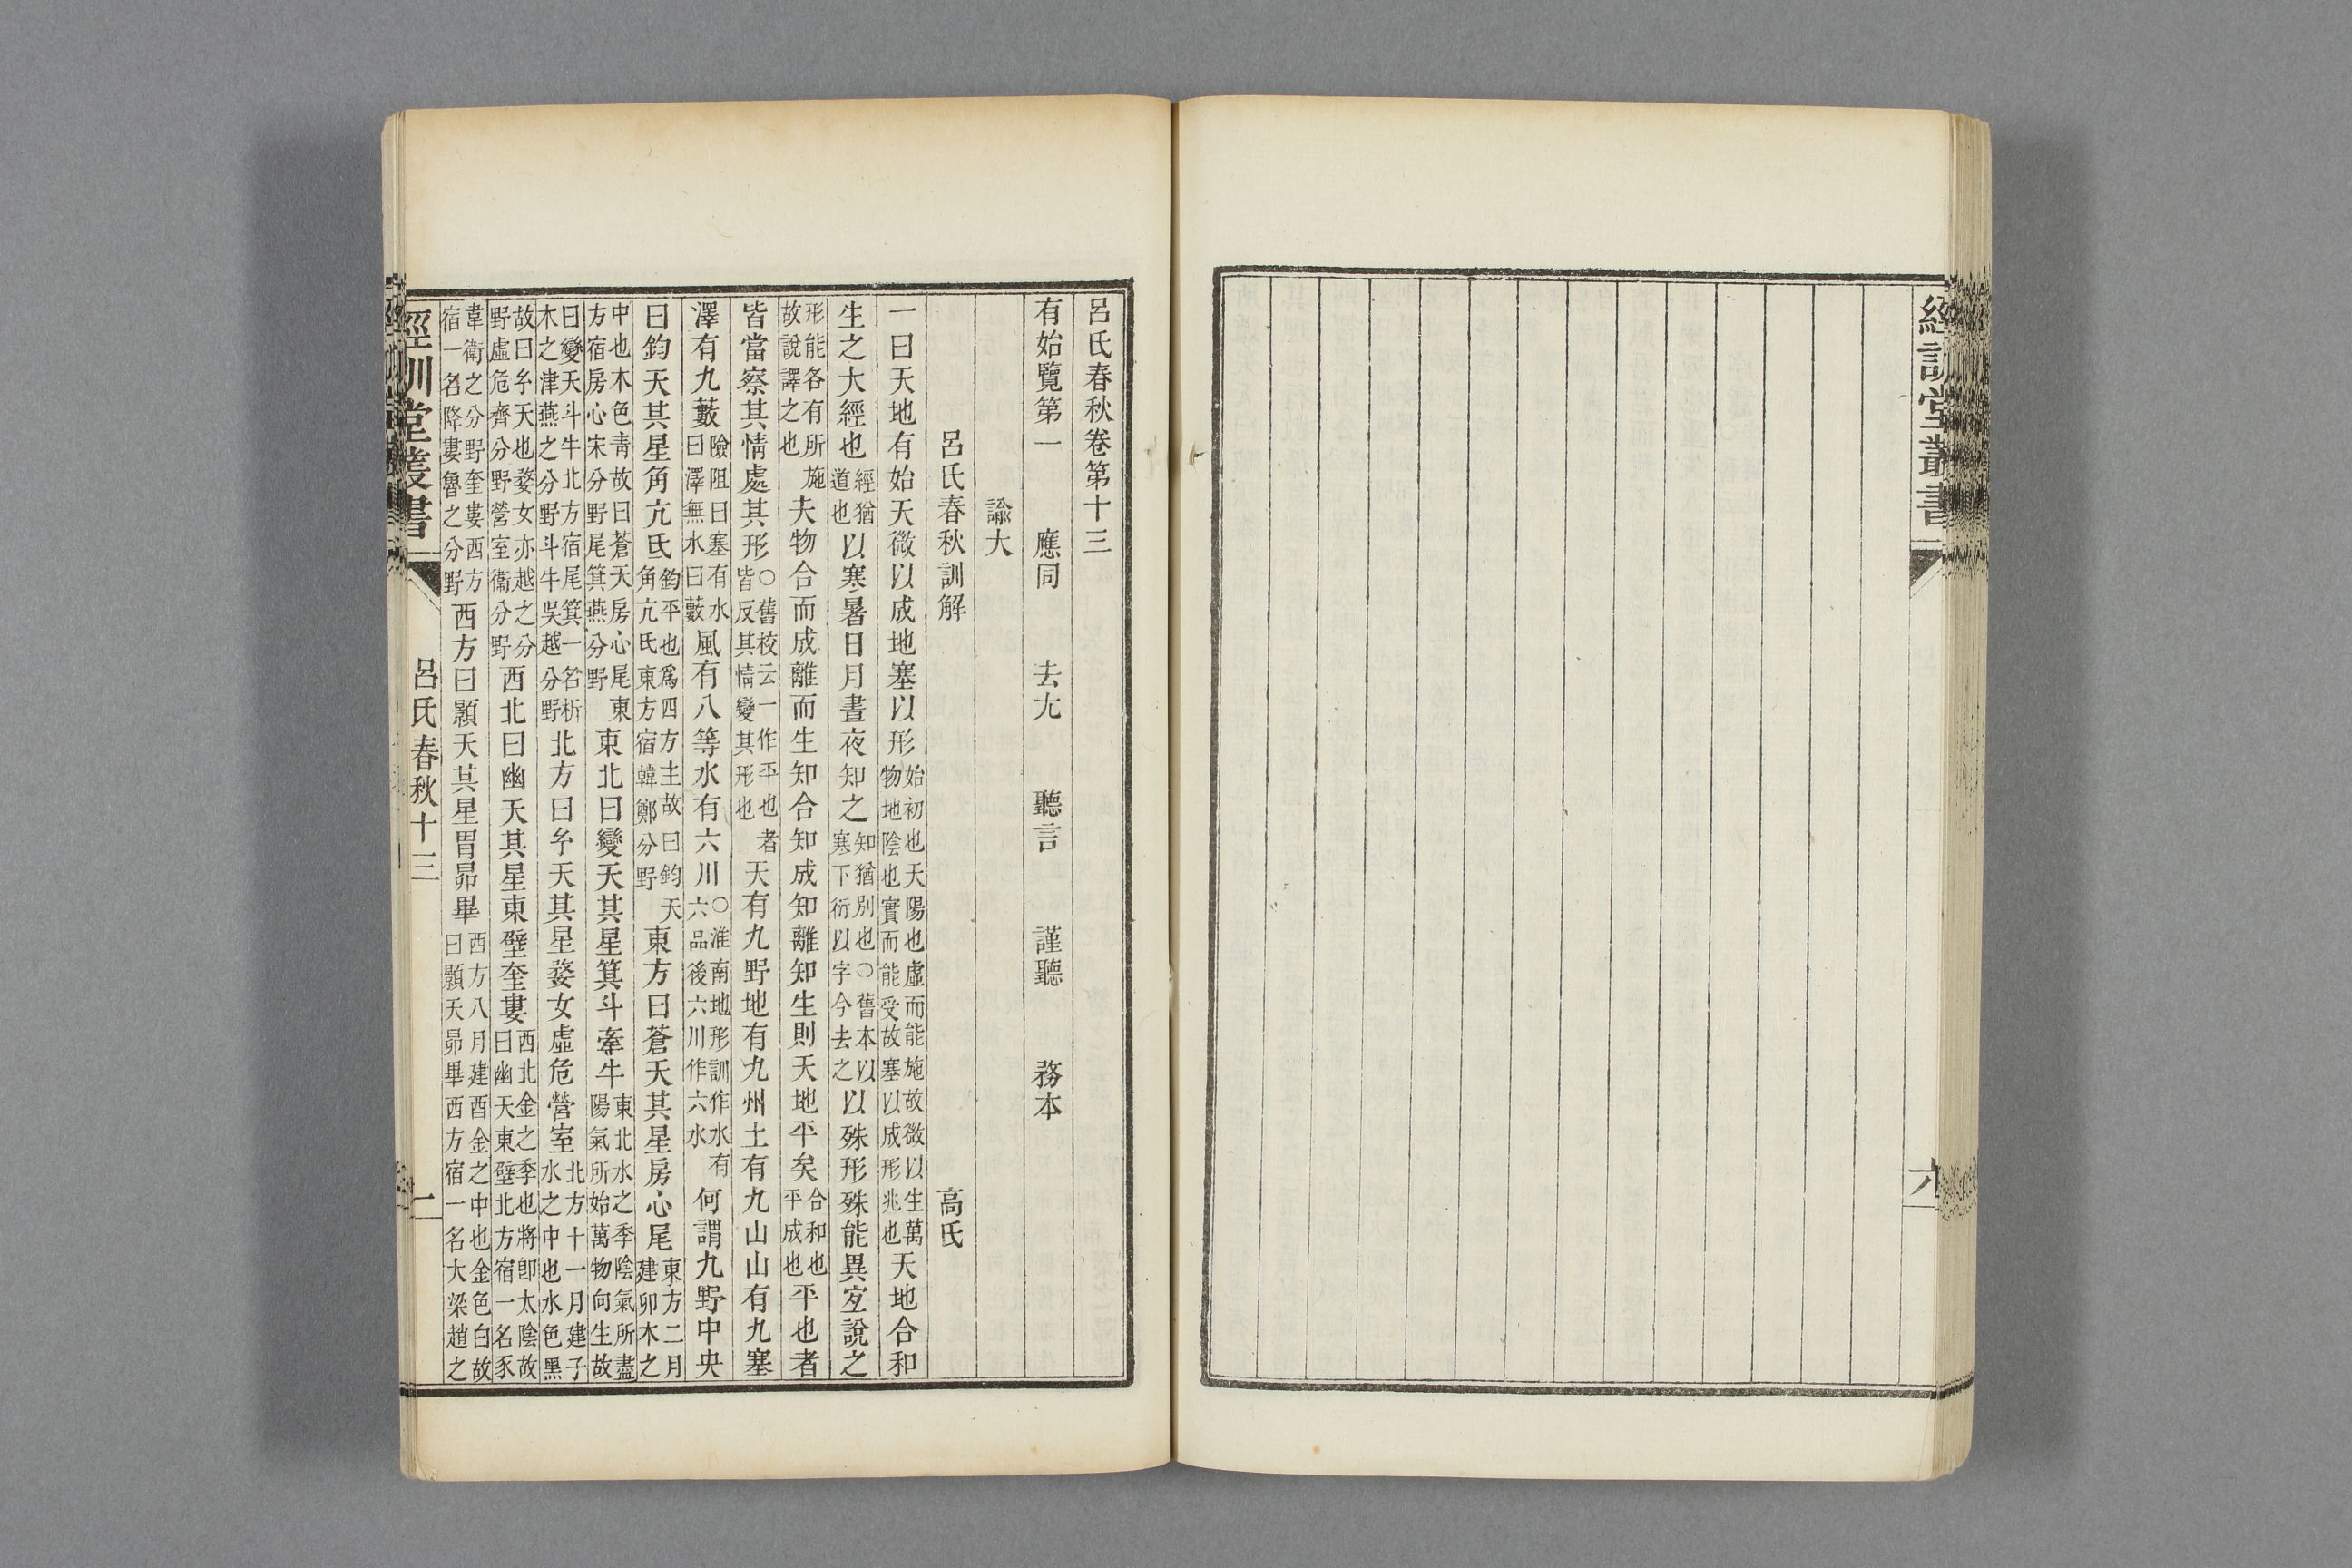 經訓堂叢書 六
呂氏春秋卷第十三
有始覽第一 應同 去尤 聽言 謹聽 務本
諭大
呂氏春秋訓解 高氏
一曰天地有始天微以成地塞以形始初也天陽也虛而能施故微以生萬物地陰也實而能受故塞以成形兆也天地合和
生之大經也經猶道也以寒暑日月晝夜知之知猶別也○舊本以寒下衍以字今去之以殊形殊能異宐說之
形能各有所施故說譯之也夫物合而成離而生知合知成知離知生則天地平矣合和也平成也平也者
皆當察其情處其形○舊校云一作平也者皆反其情變其形也天有九野地有九州土有九山山有九塞
澤有九藪險阻曰塞有水曰澤無水曰藪風有八等水有六川○淮南地形訓作水有六品後六川作六水何謂九野中央
曰鈞天其星角亢氐鈞平也爲四方主故曰鈞天角亢氐東方宿韓鄭分野東方曰蒼天其星房心尾東方二月建卯木之
中也木色靑故曰蒼天房心尾東方宿房心宋分野尾箕燕分野東北曰變天其星箕斗牽牛東北水之季陰氣所盡陽氣所始萬物向生故
曰變天斗牛北方宿尾箕一名析木之津燕之分野斗牛吳越分野北方曰玄天其星婺女虛危營室北方十一月建子水之中也水色黑
故曰玄天也婺女亦越之分野虛危齊分野營室衞分野西北曰幽天其星東壁奎婁西北金之季也將卽太陰故曰幽天東壁北方宿一名豕
韋衛之分野奎婁西方宿一名降婁魯之分野西方曰顥天其星胃昴畢西方八月建酉金之中也金色白故曰顥天昴畢西方宿一名大梁趙之
經訓堂叢書 呂氏春秋十三 一